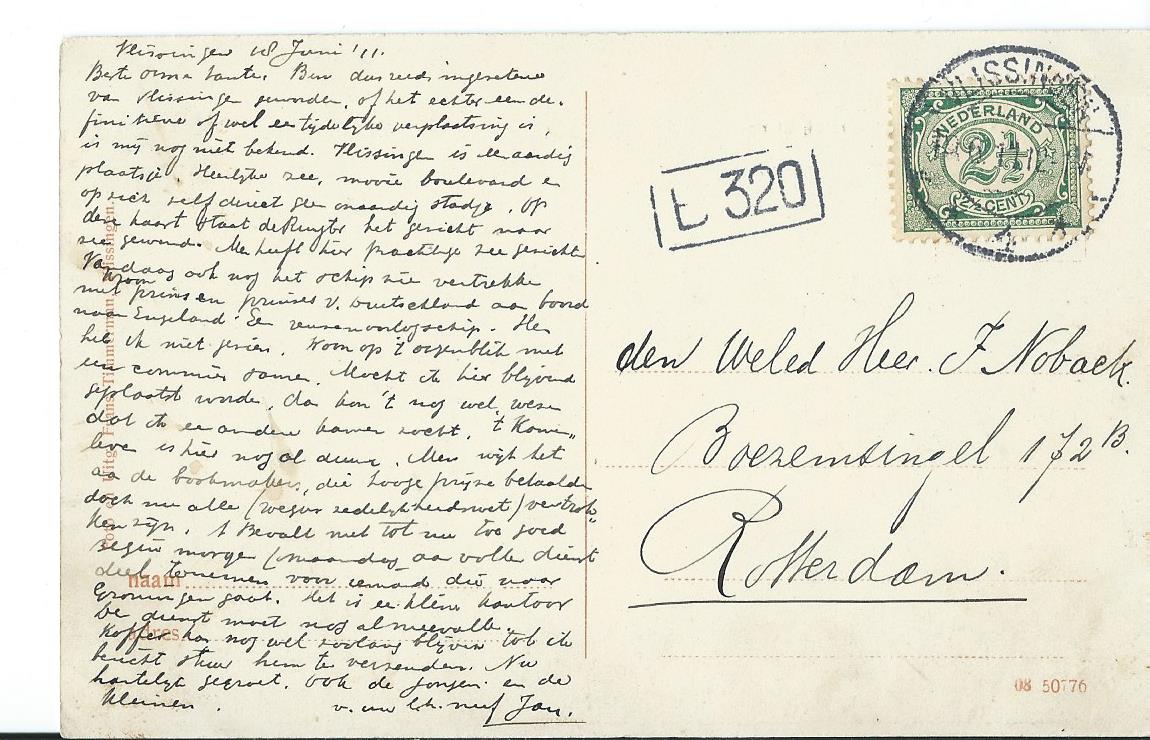 Vlissingen 18 Juni '11.
Beste oome tante. Ben dus reeds ingezetene
van Vlissingen geworden, of het echter een de-
finitieve of wel een tijdelijke verplaatsing is,
is mij nog niet bekend. Vlissingen is een aardig
plaatsje. Heerlijke zee, mooie boulevard en
op zich zelf direct geen onaardig stadje. Op
deze kaart staat de Ruyter het gezicht naar
zee gewend. Men heeft hier prachtige zee gezichten
Vandaag ook nog het schip zien vertrekken
met kroonprins en prinses v. Duitschland aan boord
naar Engeland. Een reuzenoorlogschip. Hen
heb ik niet gezien. Woon op 't oogenblik met
een commies samen. Mocht ik hier blijvend
geplaatst worden, dan kon 't nog wel wezen
dat ik een andere kamer zocht. 't
leven is hier nog al duur. Men wijt het
aan de bookmakers, die hooge prijzen betaalden
doch nu alle (wegens zedelijkheidswet) vertrok-
ken zijn. 't Bevalt met tot nu toe goed
begin morgen (maandag) aan volle dienst
deel te nemen voor iemand die naar
Groningen gaat. Het is een klein kantoor
De dienst moet nog al meevallen.
Koffer kan nog wel zoolang blijven tot ik
bericht stuur hem te verzenden. Nu
hartelijk gegroet, ook de jongen en de
kleinen. v. uw lh. neef Jan.
naam
adres
Vlissingen.
L 320
VLISSINGEN
NEDERLAND
2½
2½ CENT
den Weled Heer. F Noback.
Boezemsingel 172 B.
Rotterdam.
08 50776